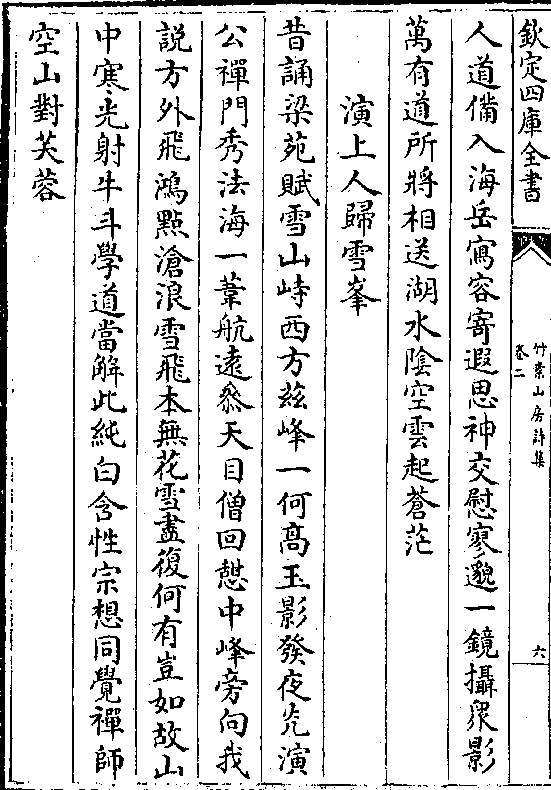 欽定四庫全書
竹素山房詩集
卷二
六
人道備入海岳寫容寄遐思神交慰寥邈一鏡攝衆影
萬有道所將相送湖水陰空雲起蒼茫
演上人歸雪峯
昔誦梁苑賦雪山峙西方兹峰一何髙玉影發夜光演
公禪門秀法海一葦航逺叅天目僧回憇中峰旁向我
説方外飛鴻㸃滄浪雪飛本無花雪盡復何有豈如故山
中寒光射牛斗學道當解此純白含性宗想同覺禪師
空山對芙蓉